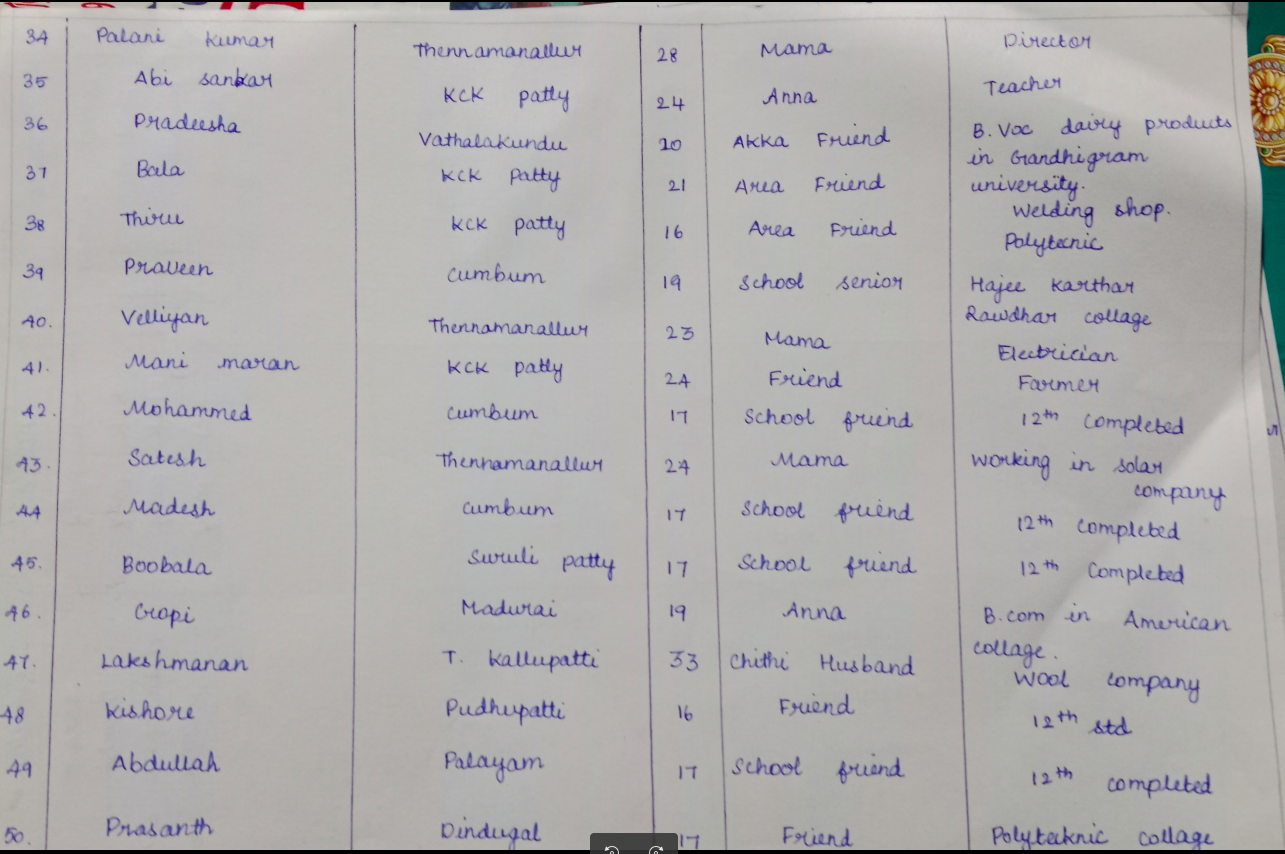 34 Palani Kumar Thennamanallur 28 Mama Director
35 Abi sankar KCK patty 24 Anna Teacher
36 Pradeesha Vathalakundu 20 Akka Friend B. Voc dairy products
in Gandhigram
university.
37 Bala KCK Patty 21 Area Friend Welding shop.
38 Thiru KCK patty 16 Area Friend Polytecnic
39 Praveen Cumbum 19 School senior Hajee Karthar
Rawdhar collage
40. Velliyan Thennamanallur 23 Mama Electrician
41. Mani maran KCK patty 24 Friend Farmer
42. Mohammed Cumbum 17 School friend 12th Completed
43. Satesh Thennamanallur 24 Mama Working in solar
company
44 Madesh Cumbum 17 School friend 12th Completed
45. Boobala Suruli patty 17 School friend 12th Completed
46. Gopi Madurai 19 Anna B.com in American
collage.
47. Lakshmanan T. Kallupatti 33 Chithi Husband Wool company
48 Kishore Pudhupatti 16 Friend 12th std
49 Abdullah Palayam 17 School friend 12th completed
50. Prasanth Dindugal 17 Friend Polyteknic collage